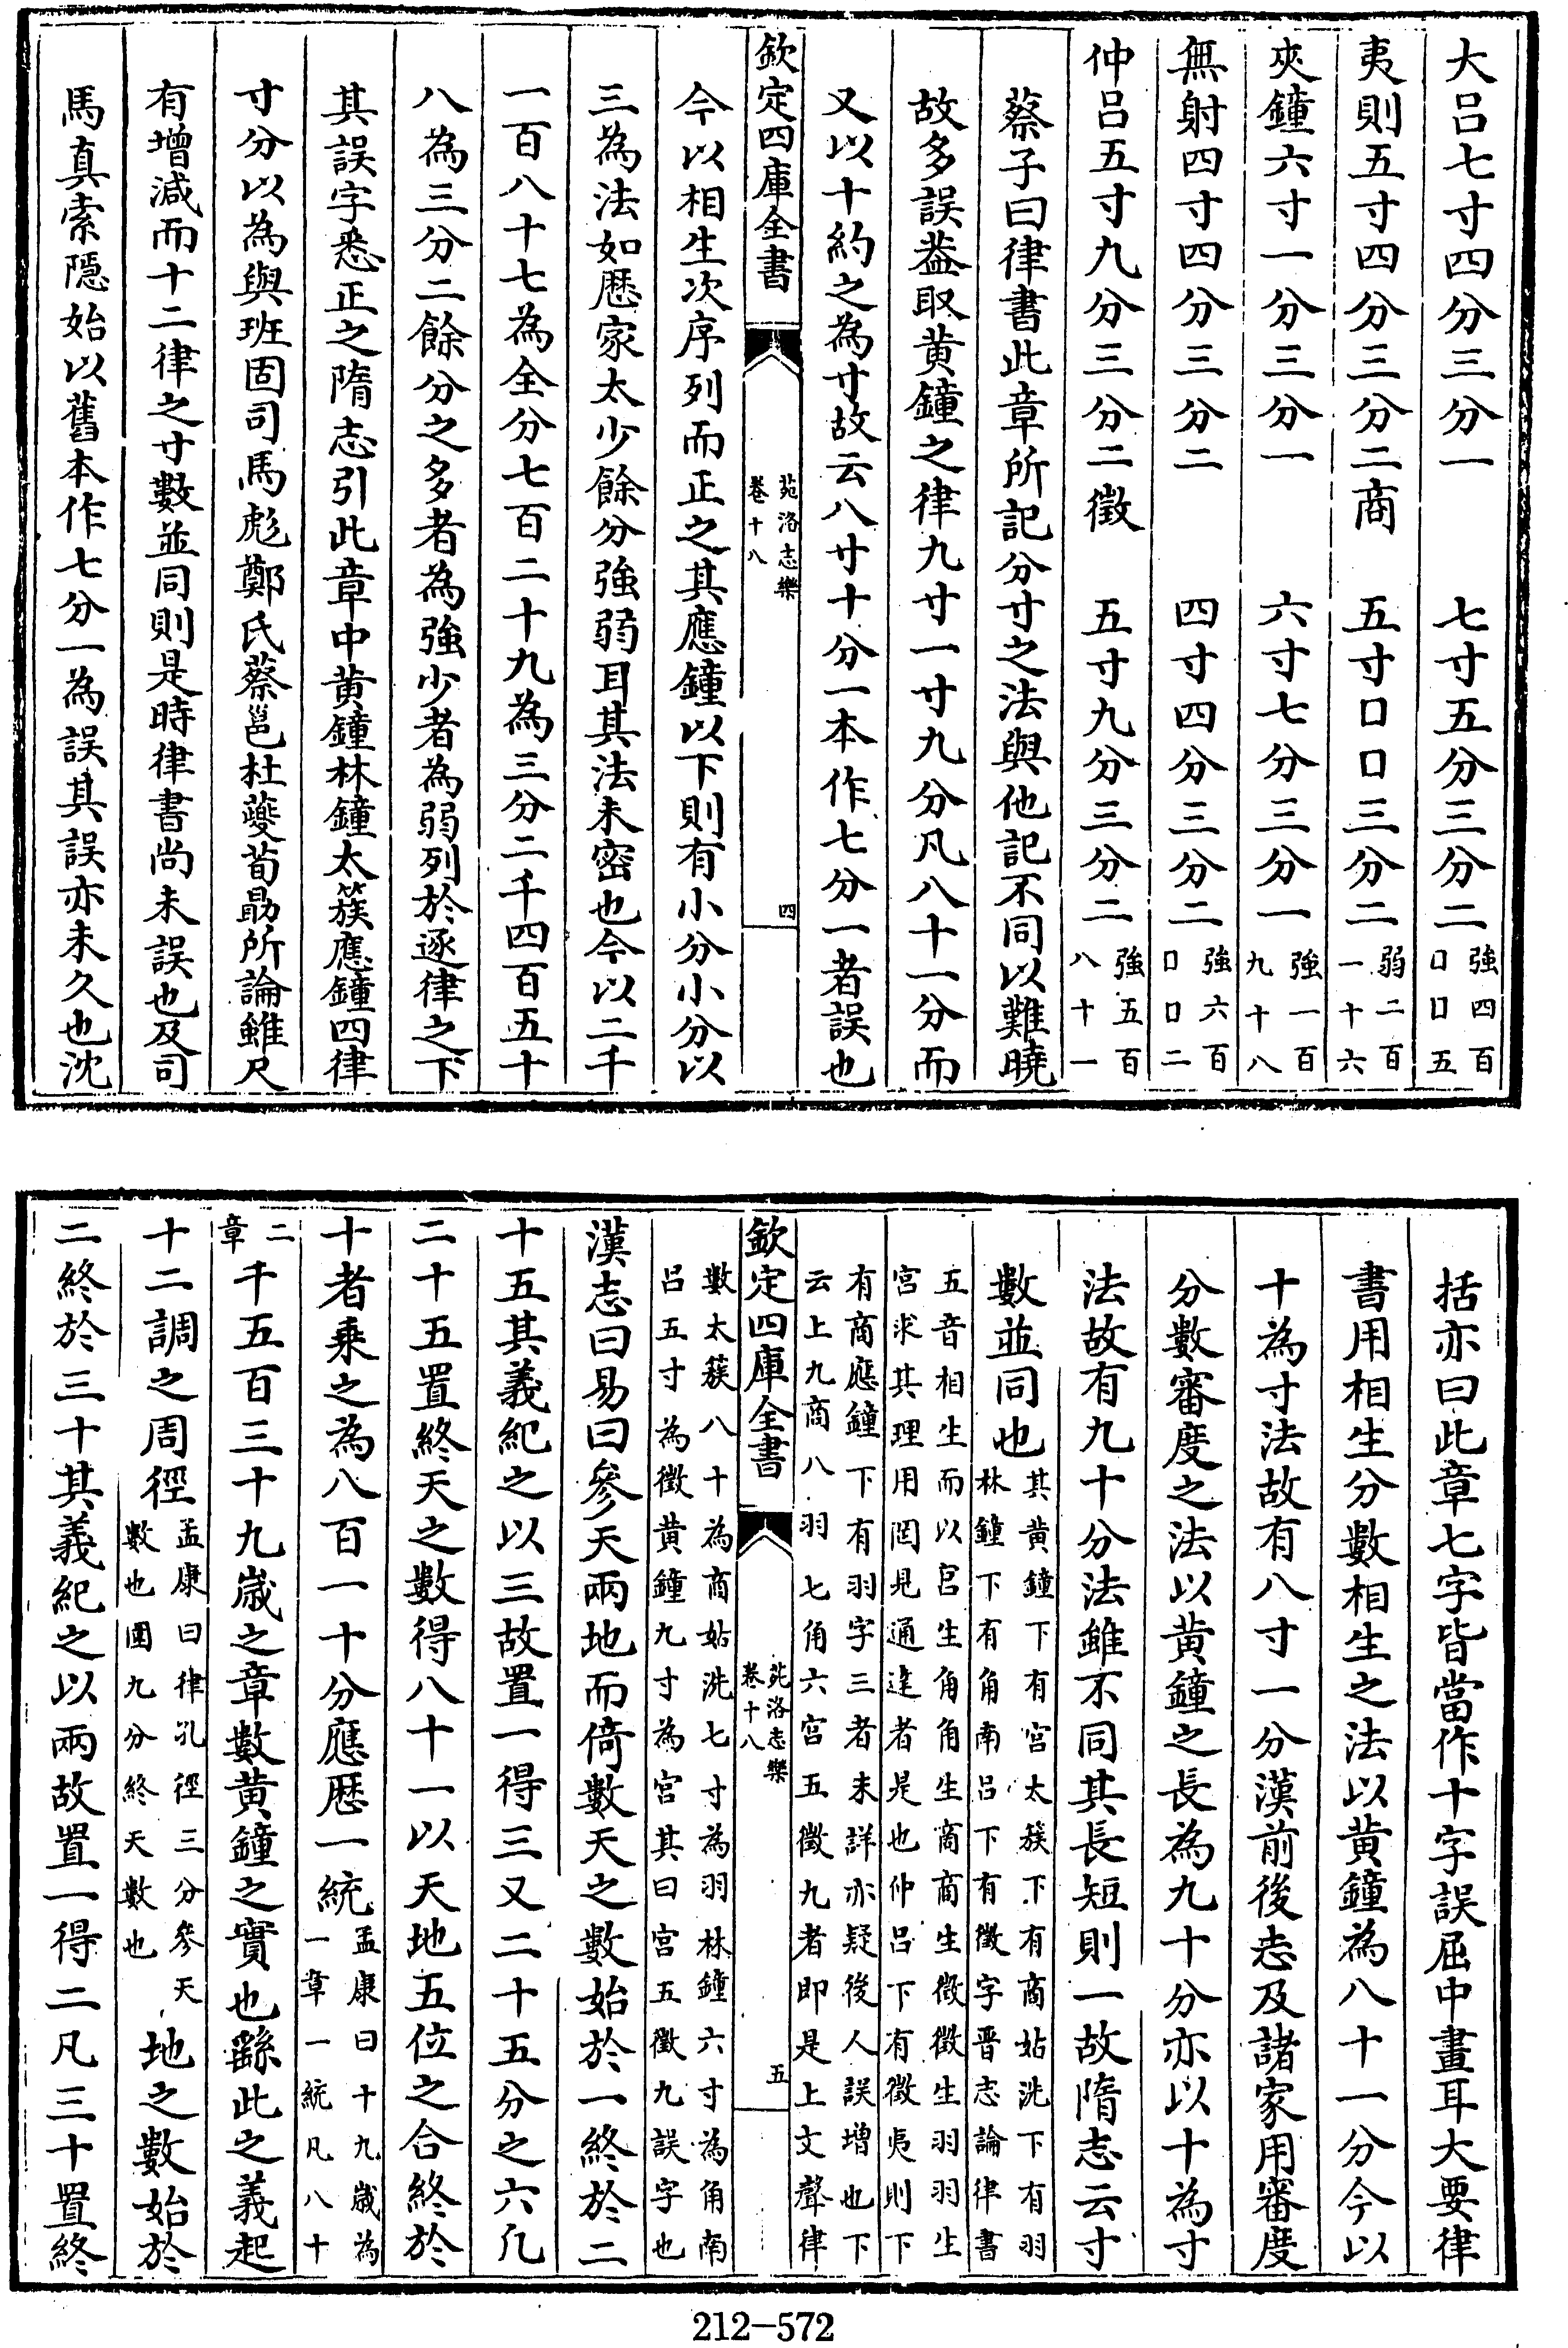 大呂七寸四分三分一　七寸五分三分二強四百口口五
夷則五寸四分三分二商　五寸口口三分二弱二百一十六
夾鐘六寸一分三分一　六寸七分三分一強一百九十八
無射四寸四分三分二　四寸四分三分二強六百口口二
仲呂五寸九分三分二徵　五寸九分三分二強五百八十一
蔡子曰律書此章所記分寸之法與他記不同以難曉
故多誤葢取黄鐘之律九寸一寸九分凡八十一分而
又以十約之為寸故云八寸十分一本作七分一者誤也
欽定四庫全書　苑洛志樂卷十八　四
今以相生次序列而正之其應鐘以下則有小分小分以
三為法如厯家太少餘分強弱耳其法未密也今以二千
一百八十七為全分七百二十九為三分二千四百五十
八為三分二餘分之多者為強少者為弱列於逐律之下
其誤字悉正之隋志引此章中黄鐘林鐘太簇應鐘四律
寸分以為與班固司馬彪鄭氏蔡邕杜夔荀勗所論雖尺
有增減而十二律之寸數並同則是時律書尚未誤也及司
馬真索隱始以舊本作七分一為誤其誤亦未久也沈
括亦曰此章七字皆當作十字誤屈中畫耳大要律
書用相生分數相生之法以黄鐘為八十一分今以
十為寸法故有八寸一分漢前後志及諸家用審度
分數審度之法以黄鐘之長為九十分亦以十為寸
法故有九十分法雖不同其長短則一故隋志云寸
數並同也其黄鐘下有宫太簇下有商姑洗下有羽林鐘下有角南呂下有徵字晉志論律書
五音相生而以宫生角角生商商生徵徵生羽羽生宫求其理用罔見通逹者是也仲呂下有徵夷則下
有商應鐘下有羽字三者未詳亦疑後人誤增也下云上九商八羽七角六宫五徵九者即是上文聲律
欽定四庫全書　苑洛志樂卷十八　五
數太簇八十為商姑洗七寸為羽林鐘六寸為角南呂五寸為徵黄鐘九寸為宫其曰宫五徵九誤字也
漢志曰易曰參天兩地而倚數天之數始於一終於二
十五其義紀之以三故置一得三又二十五分之六凡
二十五置終天之數得八十一以天地五位之合終於
十者乗之為八百一十分應厯一統孟康曰十九歲為一章一統凡八十
一章二千五百三十九歲之章數黄鐘之實也繇此之義起
十二調之周徑孟康曰律孔徑三分參天數也圍九分終天數也地之數始於
二終於三十其義紀之以兩故置一得二凡三十置終
212-572